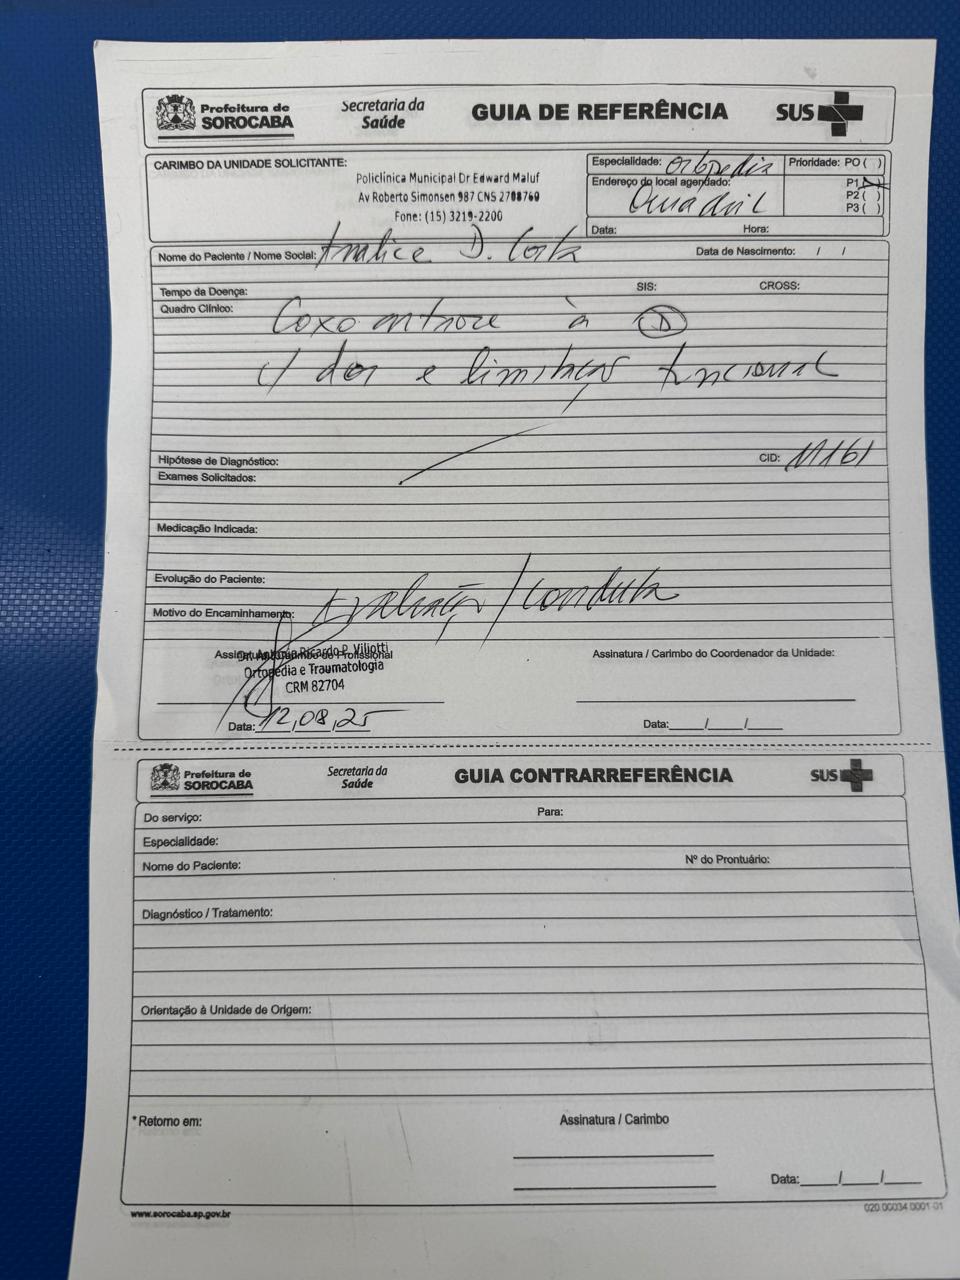 Prefeitura de SOROCABA Secretaria da Saúde GUIA DE REFERÊNCIA SUS
CARIMBO DA UNIDADE SOLICITANTE:
Policlínica Municipal Dr Edward Maluf
Av Roberto Simonsen 987 CNS 2708760
Fone: (15) 3219-2200
Especialidade: Ortopedia
Prioridade: PO ( )
Endereço do local agendado: P1 (X)
Quadril P2 ( )
P3 ( )
Data: Hora:
Nome do Paciente / Nome Social: Analice D. Costa Data de Nascimento: / /
Tempo da Doença: SIS: CROSS:
Quadro Clínico:
Coxoartrose à D
c/ dor e limitação funcional
Hipótese de Diagnóstico: CID: M161
Exames Solicitados:
Medicação Indicada:
Evolução do Paciente:
Motivo do Encaminhamento: Avaliação / Conduta
Assinatura / Carimbo do Profissional
Dr. Antônio Ricardo P. Viliotti
Ortopedia e Traumatologia
CRM 82704
Data: 12,08,25
Assinatura / Carimbo do Coordenador da Unidade:
Data:____/____/____
Prefeitura de SOROCABA Secretaria da Saúde GUIA CONTRARREFERÊNCIA SUS
Do serviço: Para:
Especialidade:
Nome do Paciente: Nº do Prontuário:
Diagnóstico / Tratamento:
Orientação à Unidade de Origem:
* Retorno em: Assinatura / Carimbo
Data:____/____/____
www.sorocaba.sp.gov.br 020.00034.0001-01